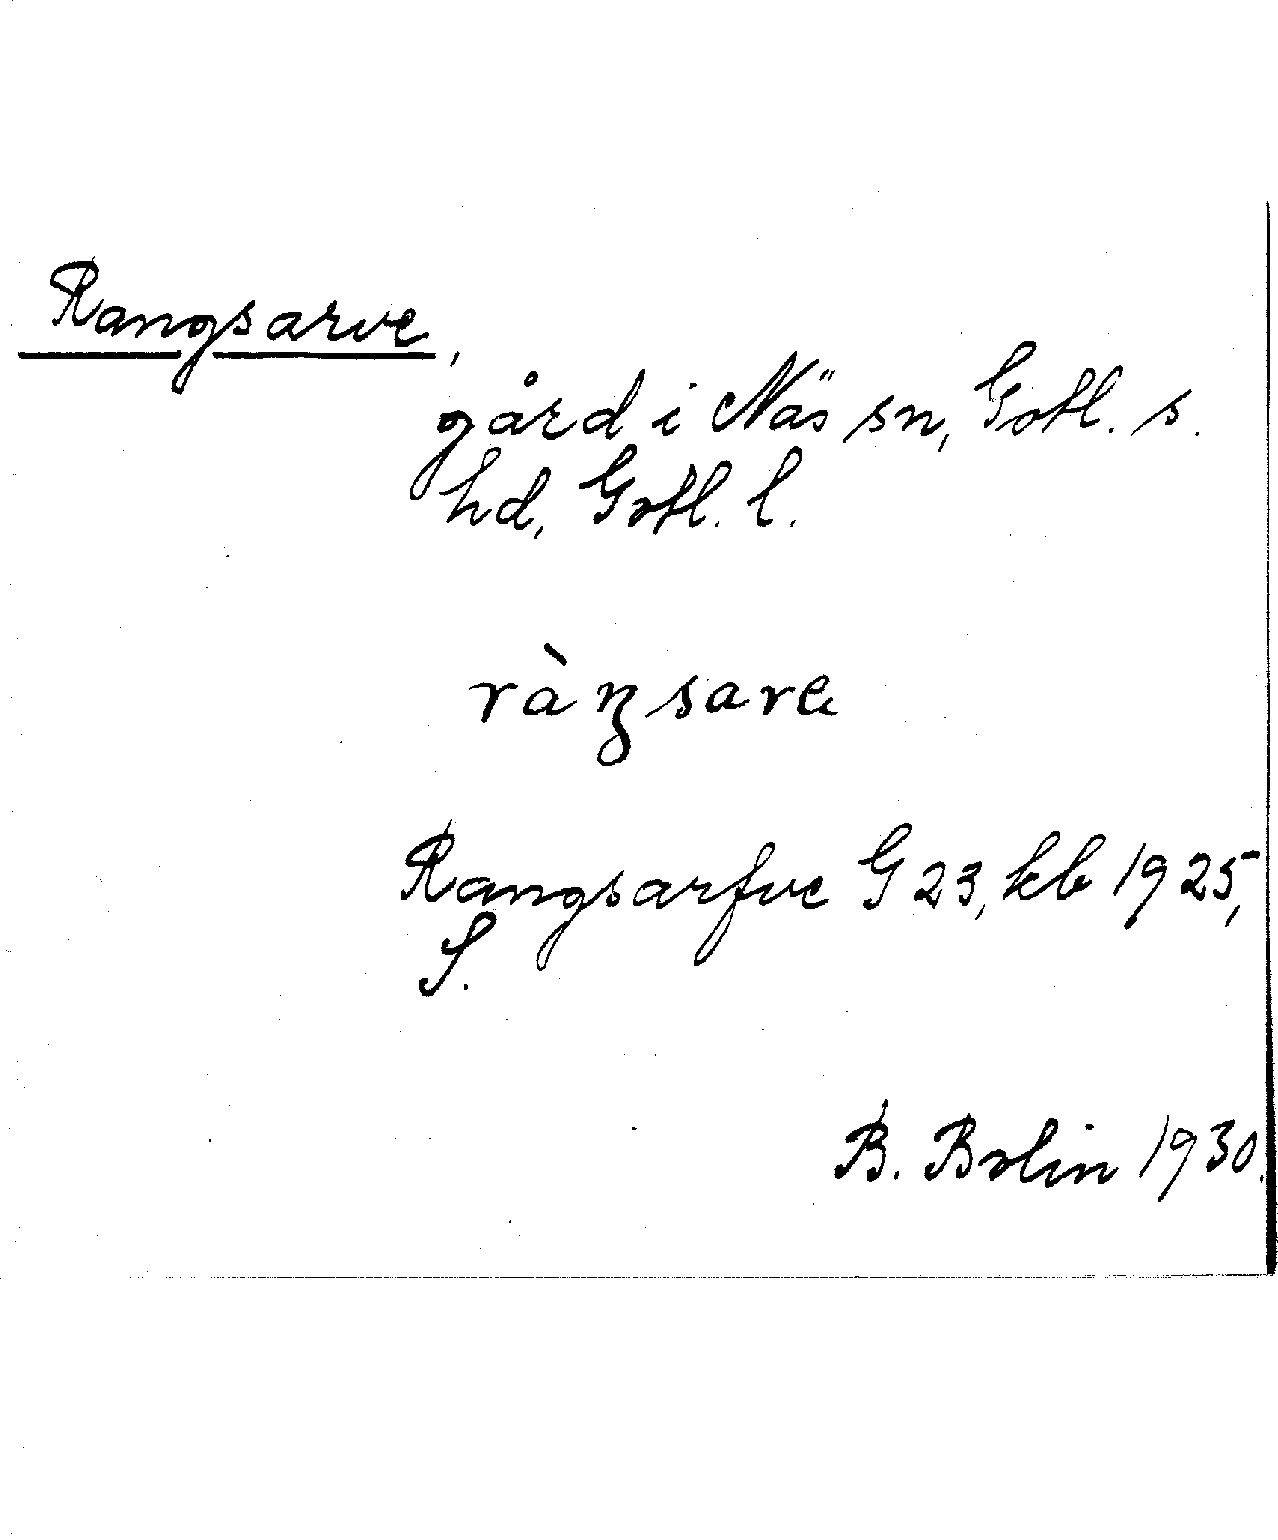 Rangsarve,
gård i Näs sn, Gotl. s.
hd, Gotl. l.
ràŋsare
Rangsarfve G 23, kb 1925,
S.
B. Bolin 1930.